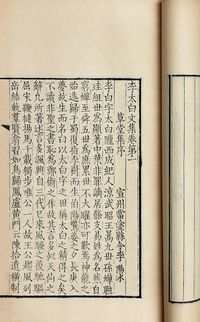 李太白文集卷第一
草堂集序
宣州當塗縣令李陽冰
李白字太白隴西成紀人涼武昭王暠九世孫蟬聯
珪組世為顯著中葉非罪謫居條支易姓與名然自
窮蟬至舜五世為庶累世不大曜亦可歎焉神龍之
始逃歸于蜀復指李樹而生伯陽驚姜之夕長庚入
夢故生而名白以太白字之世稱太白之精得之矣
不讀非聖之書恥為鄭衛之作故其言多似天仙之
辭凡所著述言多諷興自三代已來風騷之後馳驅
屈宋鞭撻揚馬千載獨步唯公一人故王公趨風列
岳結軌羣賢翕習如鳥歸鳳盧黃門云陳拾遺橫制